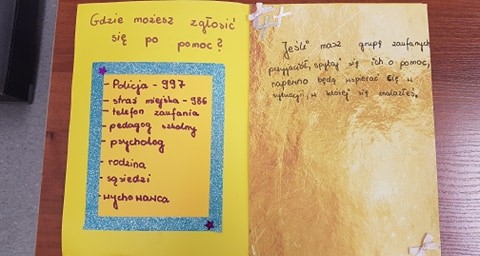 Gdzie możesz zgłosić
się po pomoc?
- Policja - 997
- straż miejska - 986
- telefon zaufania
- pedagog szkolny
- psycholog
- rodzina
- sąsiedzi
- wychowawca
"Jeśli" masz grupę zaufanych
przyjaciół, spytaj się ich o pomoc,
napewno będą wspierać cię w
sytuacji, w której się znalazłeś.